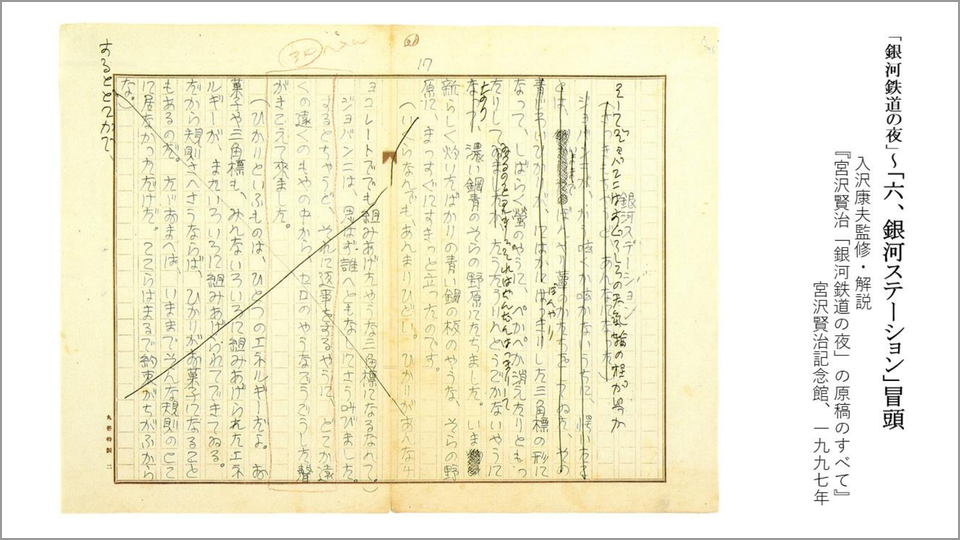 「銀河鉄道の夜」～「六、銀河ステーション」冒頭
入沢康夫監修・解説
『宮沢賢治「銀河鉄道の夜」の原稿のすべて』
宮沢賢治記念館、一九九七年
17
34
銀河ステーション
そしてジョバンニはすぐうしろの天気輪の柱がいつか
ぼんやり
した三角標の形に
なって、しばらく蛍のやうに、ぺかぺか消えたりともっ
たりしてゐるのを見ました。それはだんだんはっきりして
たうたうりんとうごかないやうに
なり、濃い鋼青のそらの野原にたちました。いま
新らしく灼いたばかりの青い鋼の板のやうな、そらの野
原に、まっすぐにすきっと立ったのです。
（いくらなんでも、あんまりひどい。ひかりがあんなチ
ョコレートででも組みあげたやうな三角標になるなんて。）
ジョバンニは、思はず誰へともなしにさう叫びました。
するとちゃうど、それに返事をするやうに、どこか遠
くの遠くのもやの中から、セロのやうなごうごうした聲
がきこえて来ました。
（ひかりといふものは、ひとつのエネルギーだよ。お
菓子や三角標も、みんないろいろに組みあげられたエネ
ルギーが、またいろいろに組みあげられてできてゐる。
だから規則さへさうならば、ひかりがお菓子になること
もあるのだ。たゞおまへは、いままでそんな規則のとこ
に居なかっただけだ。ここらはまるで約束がちがふから
な。）
するとどこかで、